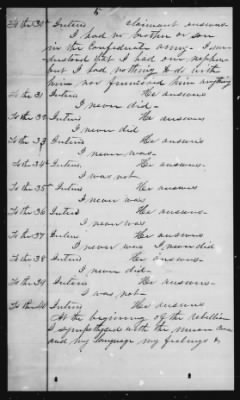 5
To the 30" Inters claimant answers
I had no brother or son
in the Confederate army. I un-
derstood that I had one nephew
but I had nothing to do with
him nor furnished him anything
To the 31 Inters Her answers
I never did-
To the 32 Inters Her answers
I never did
To the 33 Inters Her answers
I never was-
To the 34" Inters Her answers.
I was not
To the 35" Inters Her answers
I never was
To the 36 Inters Her answers-
I never was
To the 37 Inters Her answers
I never was I never did
To the 38" Inters Her answers-
I never did-
To the 39. Inters Her answers-
I was not-
To the 40 Inters Her answers
At the beginning of the rebellion
I sympathized with the union cause
and my language my feelings &